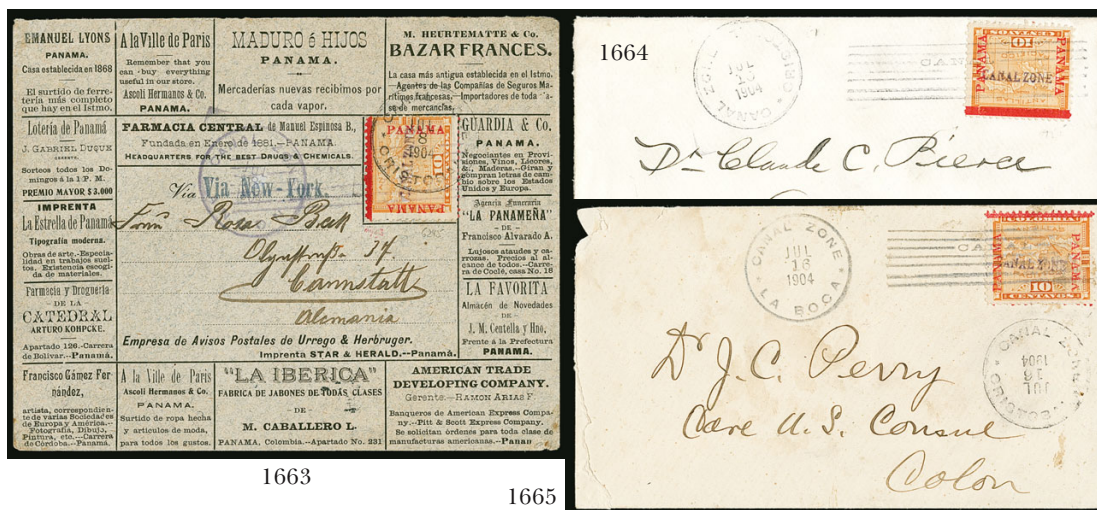 EMANUEL LYONS
PANAMA.
Casa establecida en 1868
El surtido de ferre-
tería más completo
que hay en el Istmo.
A la Ville de Paris
Remember that you
can buy everything
useful in our store.
Ascoli Hermanos & Co.
PANAMA.
MADURO é HIJOS
PANAMA.
Mercaderías nuevas recibimos por
cada vapor.
M. HEURTEMATTE & Co.
BAZAR FRANCES.
La casa más antigua establecida en el Istmo.
—Agentes de las Compañías de Seguros Ma-
rítimos francesas.—Importadores de toda
se de mercancías.
Lotería de Panamá
J. GABRIEL DUQUE
GERENTE.
Sorteos todos los Do-
mingos á la 1 P. M.
PREMIO MAYOR $ 3.000
FARMACIA CENTRAL de Manuel Espinosa B.,
Fundada en Enero de 1881.—PANAMA.
HEADQUARTERS FOR THE BEST DRUGS & CHEMICALS.
GUARDIA & Co.
PANAMA.
Negociantes en Provi-
siones, Vinos, Licores,
&., Maderas.—Giran y
compran letras de cam-
bio sobre los Estados
Unidos y Europa.
PANAMA
PANAMA
8
1904
Via Via New-York.
IMPRENTA
La Estrella de Panamá
Tipografía moderna.
Obras de arte.-Especia-
lidad en trabajos suel-
tos. Existencia escogi-
da de materiales.
Agencia Funeraria
"LA PANAMEÑA"
- DE -
Francisco Alvarado A.
Lujosos ataudes y ca-
rrozas. Precios al al-
cance de todos.—Carre-
ra de Coclé, casa No. 18
Olgastrasse 37.
Cannstatt
Alemania
Farmacia y Droguería
- DE LA -
CATEDRAL
ARTURO KOHPCKE.
Apartado 126.-Carrera
de Bolívar.--Panamá.
LA FAVORITA
Almacén de Novedades
- DE -
J. M. Centella y Hno.
Frente á la Prefectura
PANAMA.
Empresa de Avisos Postales de Urrego & Herbruger.
Imprenta STAR & HERALD.--Panamá.
Francisco Gámez Fer-
nández,
artista, correspondien-
te de varias Sociedades
de Europa y América.—
Fotografía, Dibujo,
Pintura, etc.--Carrera
de Córdoba.--Panamá.
A la Ville de Paris
Ascoli Hermanos & Co.
PANAMA.
Surtido de ropa hecha
y artículos de moda,
para todos los gustos.
"LA IBERICA"
FABRICA DE JABONES DE TODAS CLASES
DE
M. CABALLERO L.
PANAMA, Colombia.--Apartado No. 231
AMERICAN TRADE
DEVELOPING COMPANY.
Gerente.- RAMON ARIAS F.
Banqueros de American Express Compa-
ny.--Pitt & Scott Express Company.
Se solicitan órdenes para toda clase de
manufacturas americanas.--Panam
1663
1664
CANAL ZONE
JUL
16
1904
PANAMA
PANAMA
10
CANAL ZONE
Dr Claude C. Pierce
CANAL ZONE
JUL
16
1904
LA BOCA
COLOMBIA
PANAMA
PANAMA
CANAL ZONE
10
CENTAVOS
CANAL ZONE
JUL
16
1904
Dr J. C. Perry
Care U. S. Consul
Colon
1665